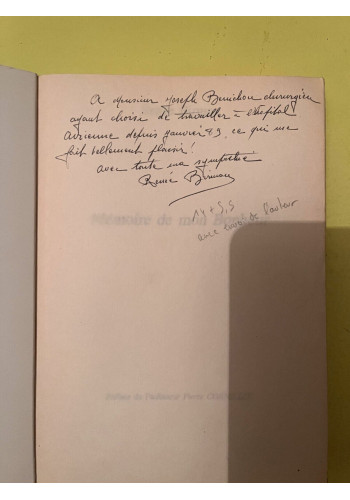 A Monsieur Joseph Benichou chirurgien
ayant choisi de travailler à l'hôpital
Avicenne depuis janvier 89, ce qui me
fait tellement plaisir!
avec toute ma sympathie
René
14 + 5,5
avec envoi de l'auteur
Mémoire de mon
Préface du Professeur Pierre